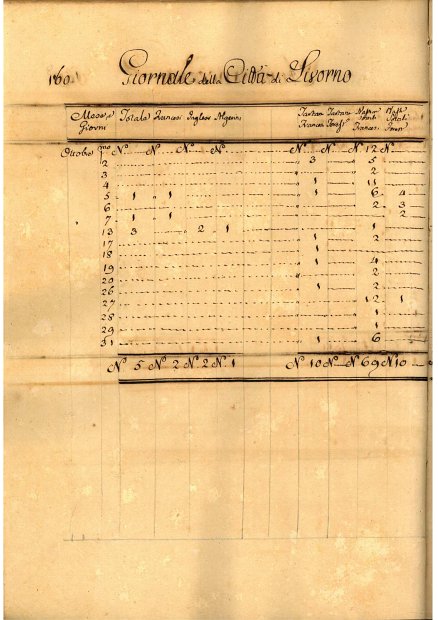 160 Giornale della Città di Livorno
Mese e Giorni Totale Francesi Inglesi Algerini Tartan Francesi Tartane Tosc. Francesi
Ottobre p.mo N.o N.o N.o N.o N.o N.o N.o 12 N.o
2 3 5
3 2
4 1 11
5 1 1 1 6 4
6 2 3
7 1 1 2
13 3 2 1 1
17 1 2
18 1
19 1 4
20 2
26 1 2
27 12 1
28 1
29 1
31 1 6
N.o 5 N.o 2 N.o 2 N.o 1 N.o 10 N.o N.o 69 N.o 10